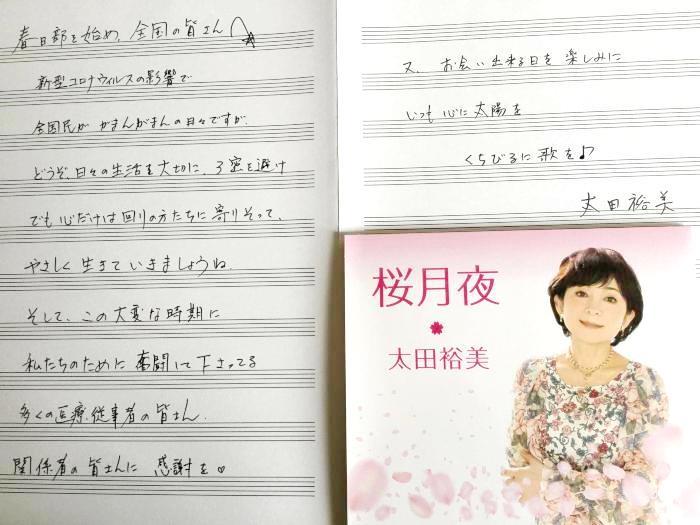 春日部を始め、全国の皆さん
新型コロナウィルスの影響で
全国民が がまんがまんの日々ですが、
どうぞ、日々の生活を大切に、3密を避け
でも心だけは回りの方たちに寄りそって、
やさしく生きていきましょうね。
そして、この大変な時期に
私たちのために奮闘して下さってる
多くの医療従事者の皆さん、
関係者の皆さんに 感謝を♥
又、お会い出来る日を楽しみに
いつも心に太陽を
くちびるに歌を♪
太田裕美
桜月夜
太田裕美